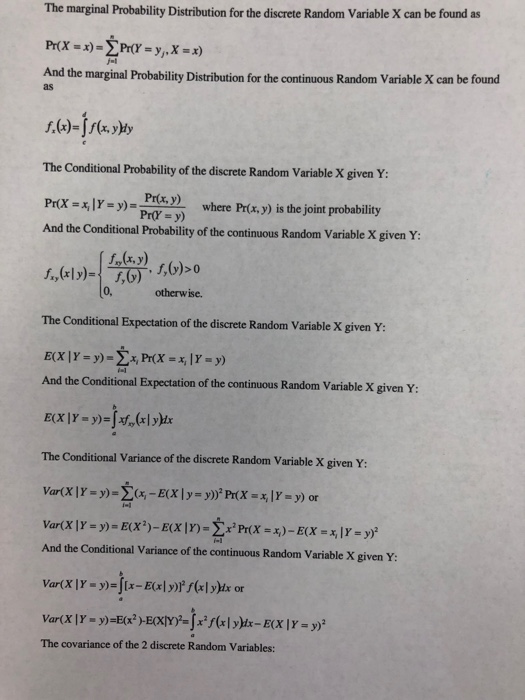 The marginal Probability Distribution for the discrete Random Variable X can be found as
Pr(X = x) = ∑_{j=1}^{n} Pr(Y = y_j, X = x)
And the marginal Probability Distribution for the continuous Random Variable X can be found
as
f_x(x) = ∫_c^d f(x, y)dy
The Conditional Probability of the discrete Random Variable X given Y:
Pr(X = x_i | Y = y) = Pr(x, y) / Pr(Y = y) where Pr(x, y) is the joint probability
And the Conditional Probability of the continuous Random Variable X given Y:
f_{xy}(x | y) = { f_{xy}(x, y) / f_y(y), f_y(y) > 0
0, otherwise.
The Conditional Expectation of the discrete Random Variable X given Y:
E(X | Y = y) = ∑_{i=1}^{n} x_i Pr(X = x_i | Y = y)
And the Conditional Expectation of the continuous Random Variable X given Y:
E(X | Y = y) = ∫_a^b xf_{xy}(x | y)dx
The Conditional Variance of the discrete Random Variable X given Y:
Var(X | Y = y) = ∑_{i=1}^{n} (x_i − E(X | y = y))² Pr(X = x_i | Y = y) or
Var(X | Y = y) = E(X²) − E(X | Y) = ∑_{i=1}^{n} x² Pr(X = x_i) − E(X = x_i | Y = y)²
And the Conditional Variance of the continuous Random Variable X given Y:
Var(X | Y = y) = ∫_a^b [x − E(x | y)]² f(x | y)dx or
Var(X | Y = y)=E(x²)-E(X|Y)²= ∫_a^b x² f(x | y)dx − E(X | Y = y)²
The covariance of the 2 discrete Random Variables: